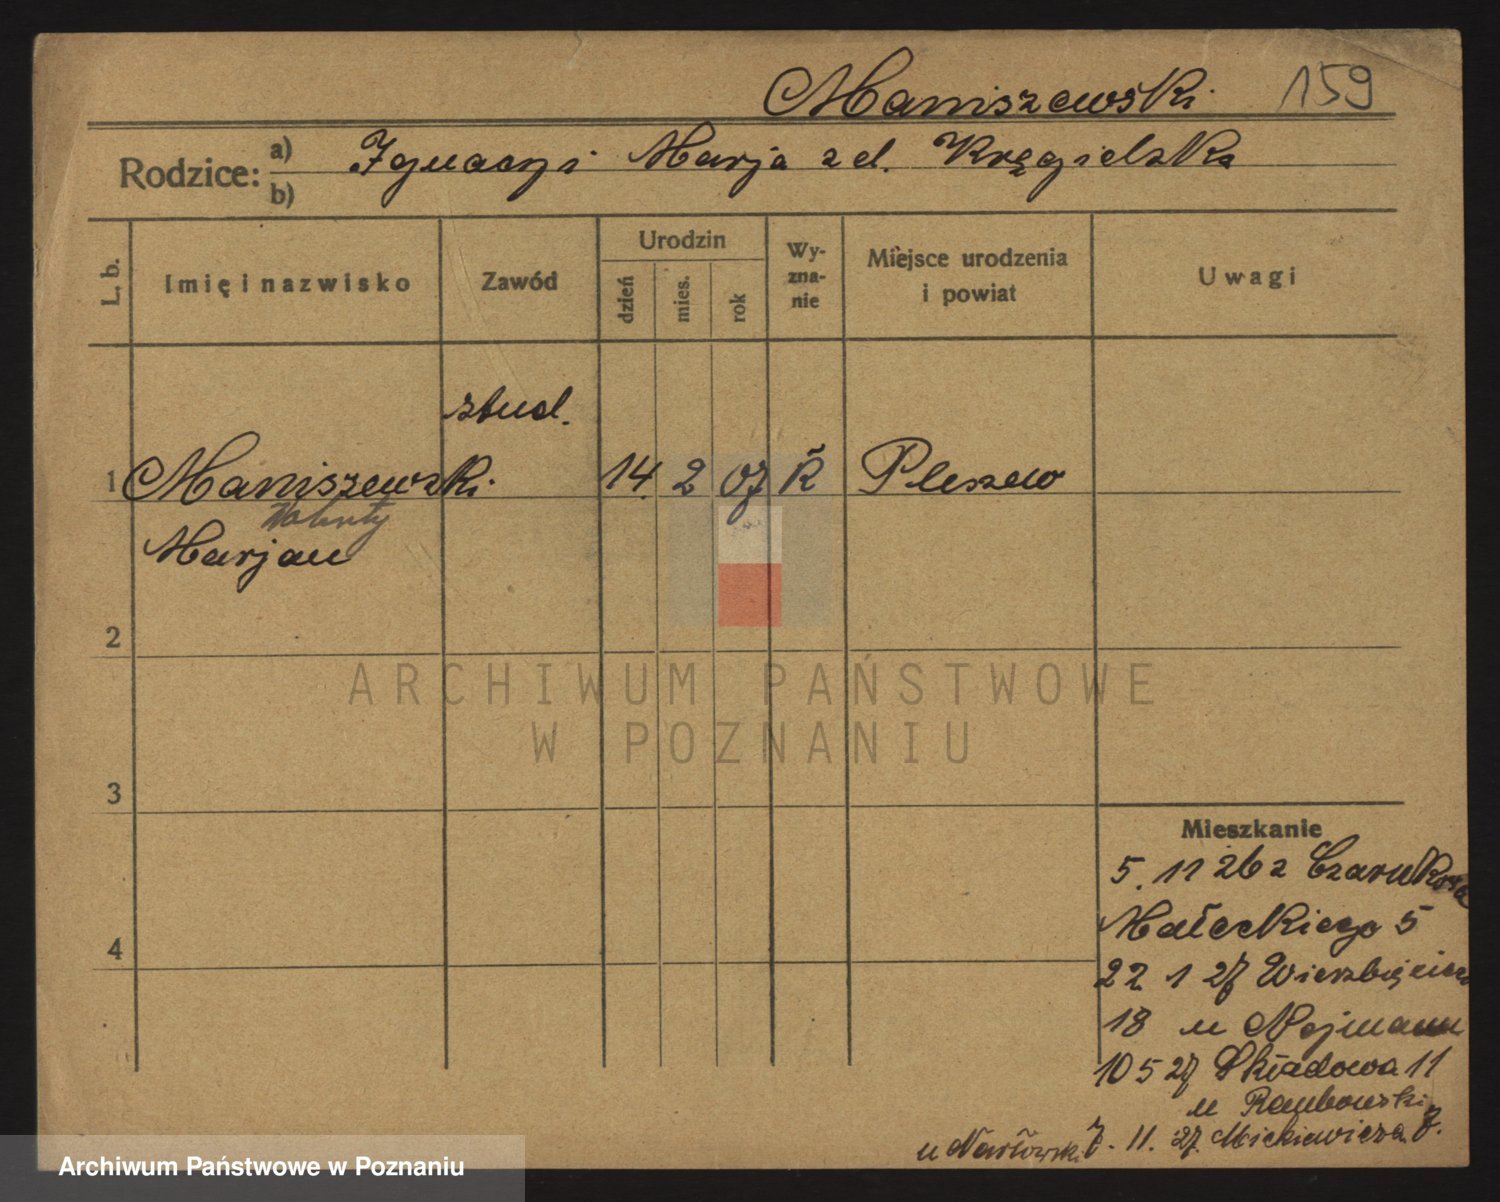 Maniszewski 159
Rodzice: a) Ignacy i Marja zd. Kręgielska
b)
L. b. Imię i nazwisko Zawód Urodzin dzień mies. rok Wy-zna-nie Miejsce urodzenia i powiat Uwagi
stud.
1 Maniszewski 14. 2 07 Ř Pleszew
Walenty
Marjan
2
ARCHIWUM PAŃSTWOWE
W POZNANIU
3
Mieszkanie
5. 11 26 z Czarnkowa
Małeckiego 5
4
22 1 27 Wierzbięcice
18 u Nojmann
10 5 27 Składowa 11
u Rambowski
u 7. 11. 27. Mickiewicza 7.
Archiwum Państwowe w Poznaniu